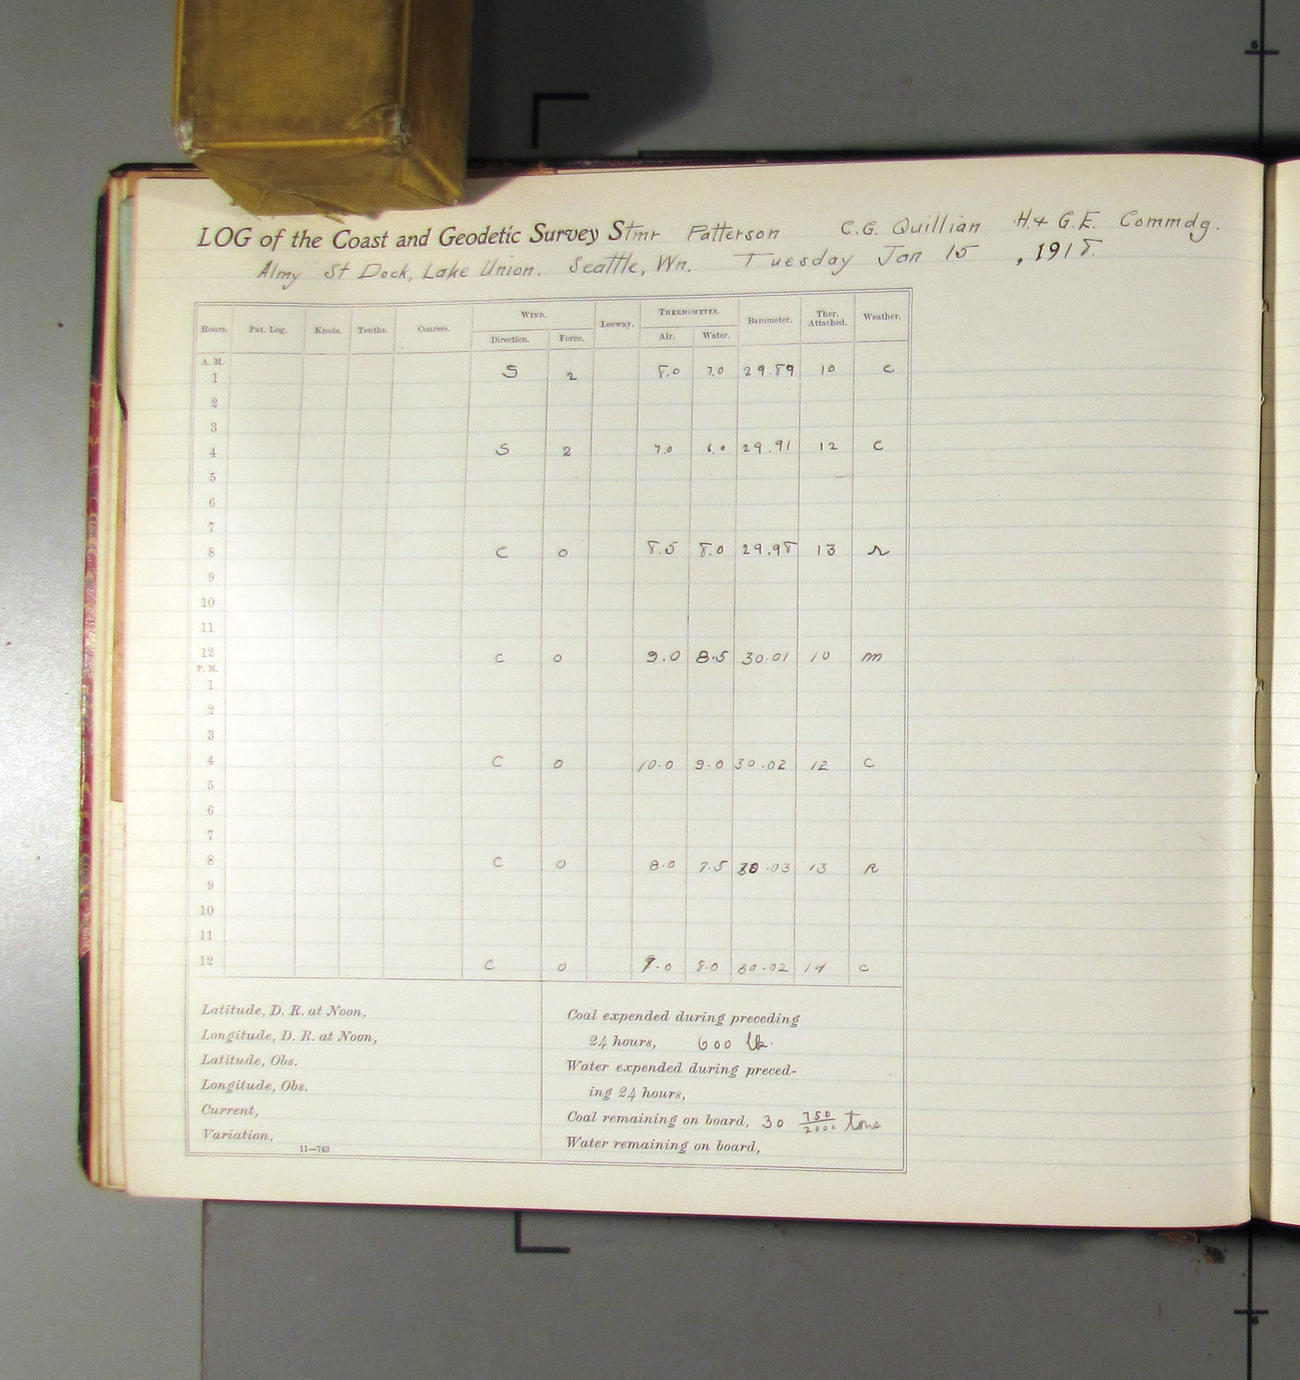 LOG of the Coast and Geodetic Survey Stmr Patterson C.G. Quillian H. & G.E. Commdg.
Almy St Dock, Lake Union. Seattle, Wn. Tuesday Jan 15, 1918.
Hours. Pat. Log. Knots. Tenths. Courses. WIND. Leeway. THERMOMETER. Barometer. Ther. Attached. Weather.
Direction. Force. Air. Water.
A. M.
1 S 2 8.0 7.0 29.89 10 c
2
3
4 S 2 7.0 6.0 29.91 12 c
5
6
7
8 C 0 8.5 8.0 29.98 13 r
9
10
11
12 C 0 9.0 8.5 30.01 10 m
P. M.
1
2
3
4 C 0 10.0 9.0 30.02 12 c
5
6
7
8 C 0 8.0 7.5 30.03 13 R
9
10
11
12 C 0 9.0 8.0 30.02 14 c
Latitude, D. R. at Noon,
Longitude, D. R. at Noon,
Latitude, Obs.
Longitude, Obs.
Current,
Variation,
11—743
Coal expended during preceding
24 hours, 600 lb.
Water expended during preced-
ing 24 hours,
Coal remaining on board, 30 750/2000 tons
Water remaining on board,
6
6